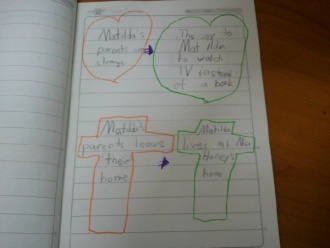 Matilda's
parents are
strangs
The say to
Matilda
to watch
TV instead
of a book
Matilda's
parents leave
their
home
Matilda
lives at Ms.
Honeys
home